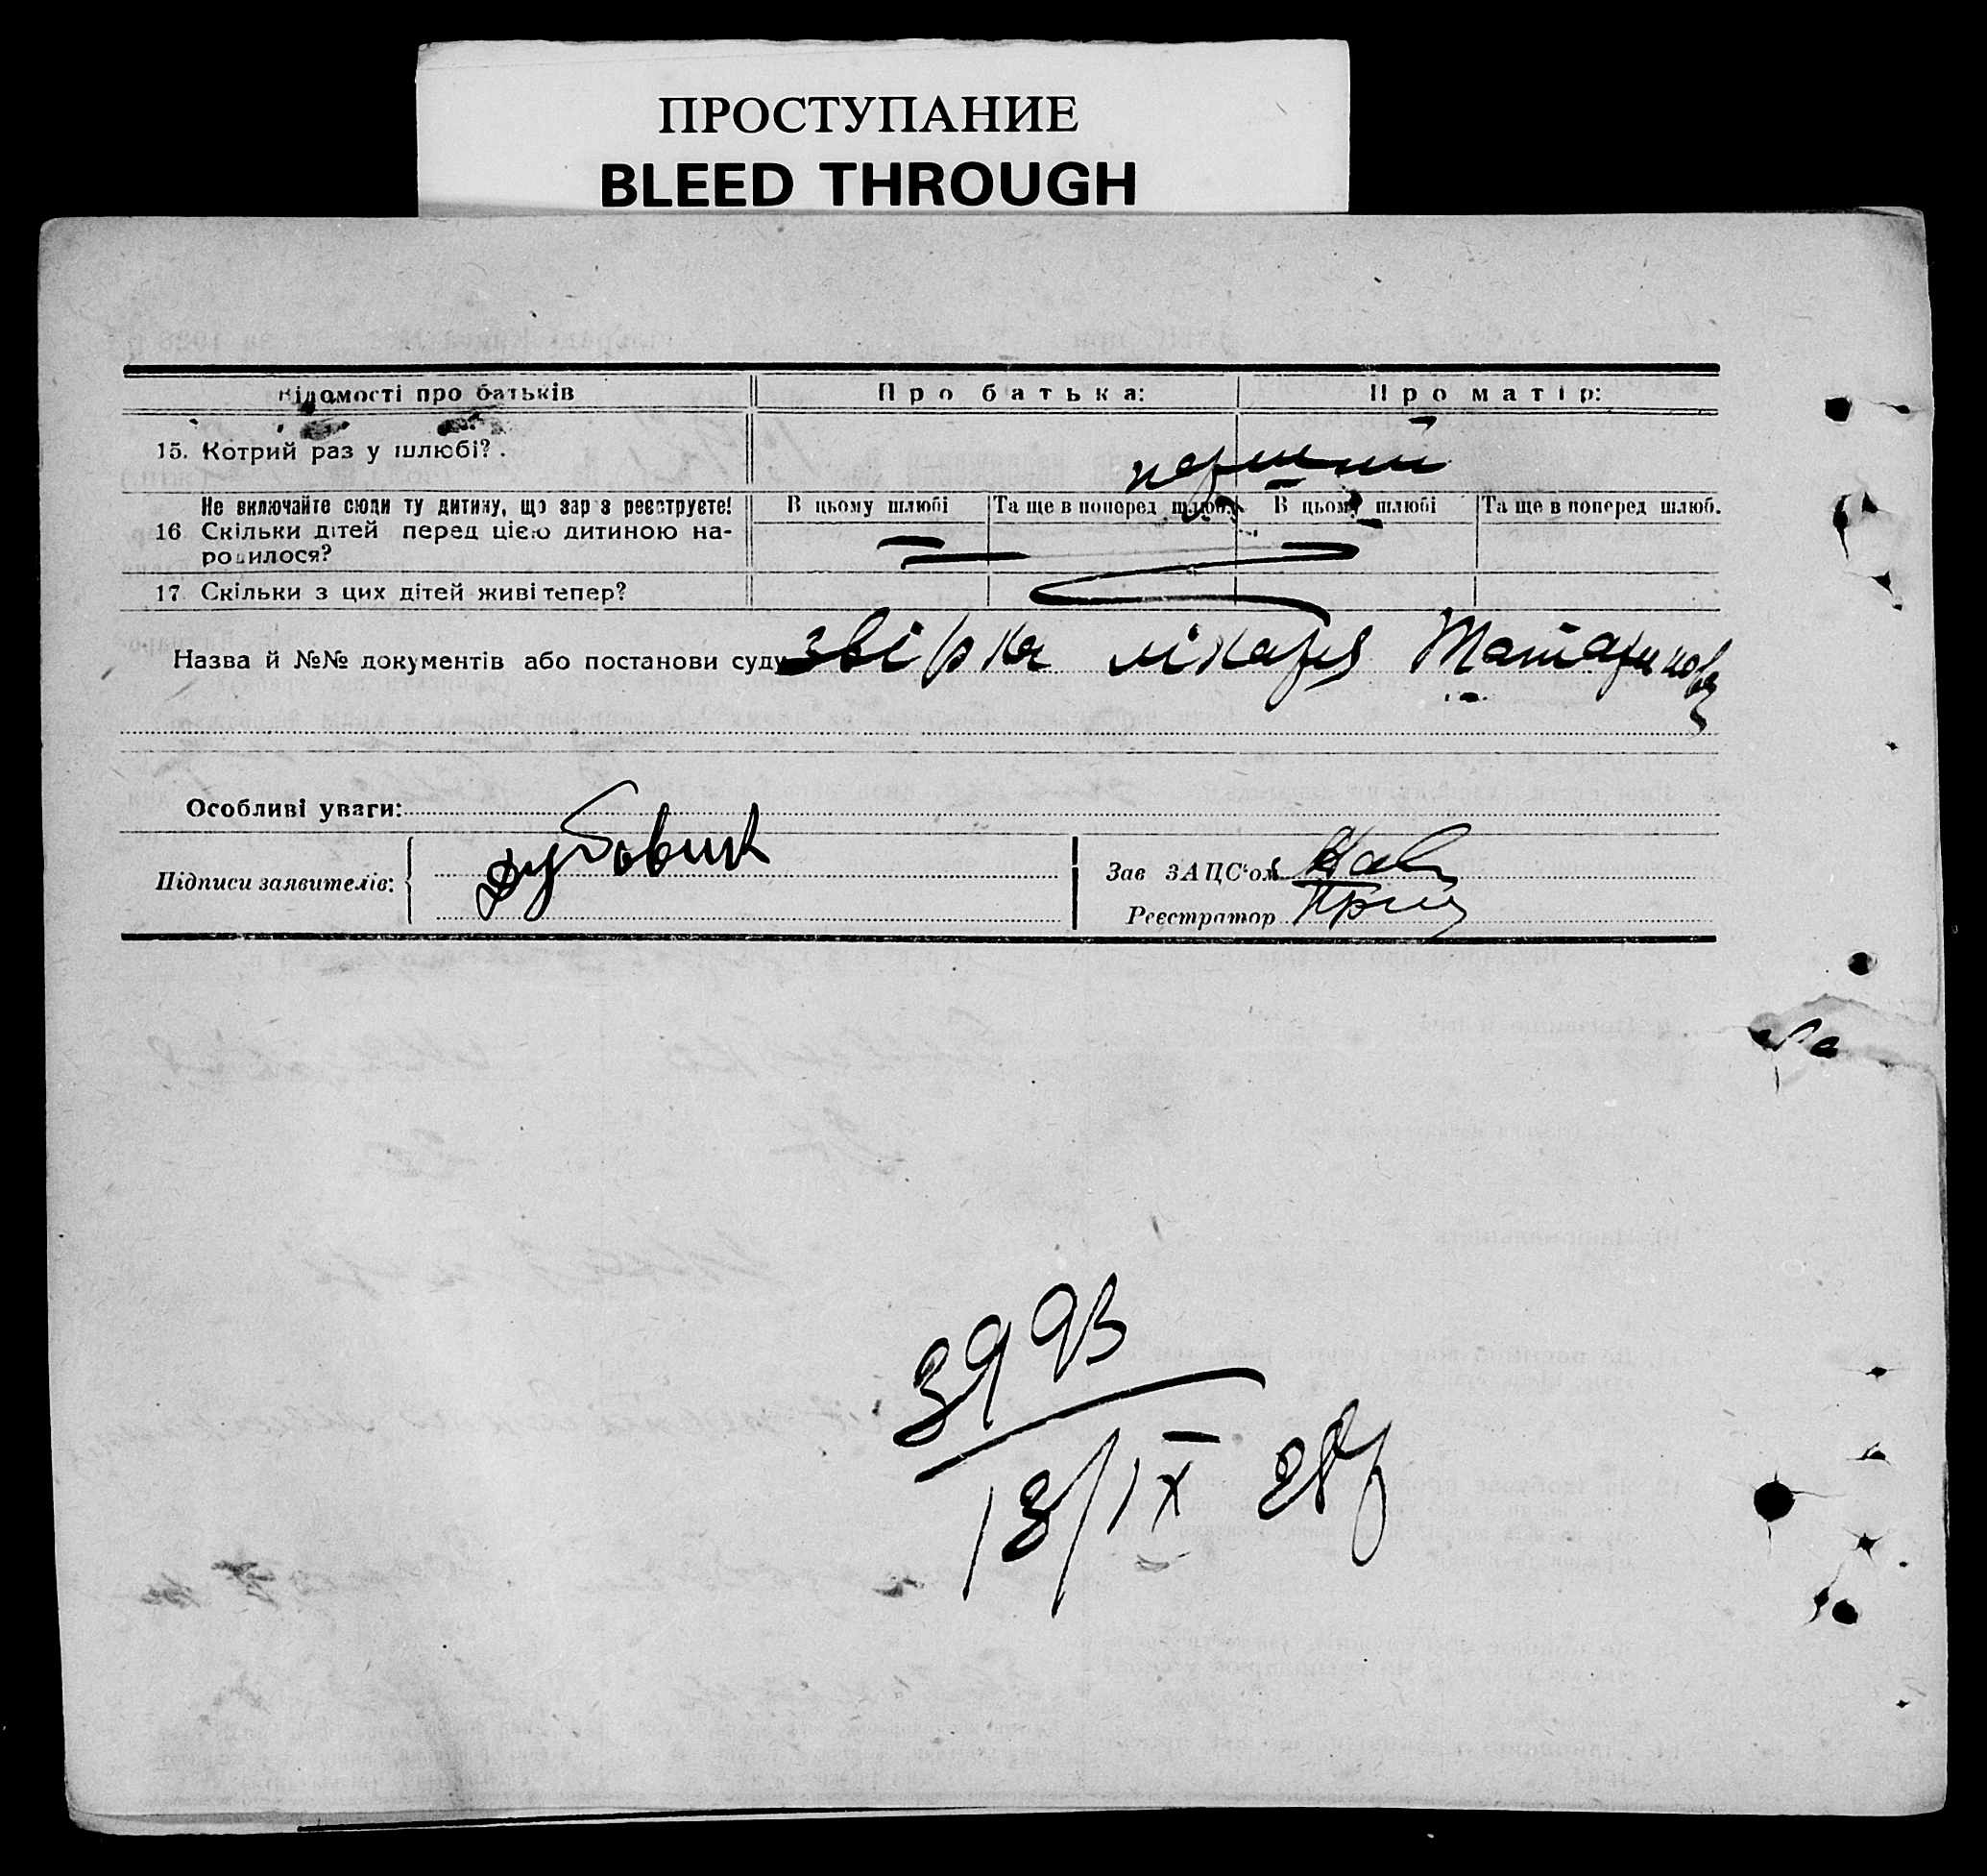 ПРОСТУПАНИЕ
BLEED THROUGH
Відомості про батьків Про батька: Про матір:
15. Котрий раз у шлюбі? перший
Не включайте сюди ту дитину, що зараз реєструєте! В цьому шлюбі Та ще в поперед. шлюб. В цьому шлюбі Та ще в поперед. шлюб.
16. Скільки дітей перед цією дитиною на-
родилося? —
17. Скільки з цих дітей живі тепер?
Назва й №№ документів або постанови суду звірка лікаря
Особливі уваги:
Підписи заявителів: Дубовик
Зав ЗАЦС'ом
Реєстратор
3993
13/IX 28р